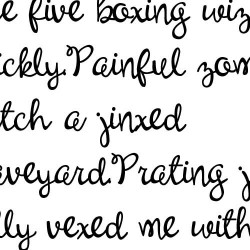 e five boxing wiz
ickly.Painful zom
tch a jinxed
aveyard.Prating j
lly vexed me with